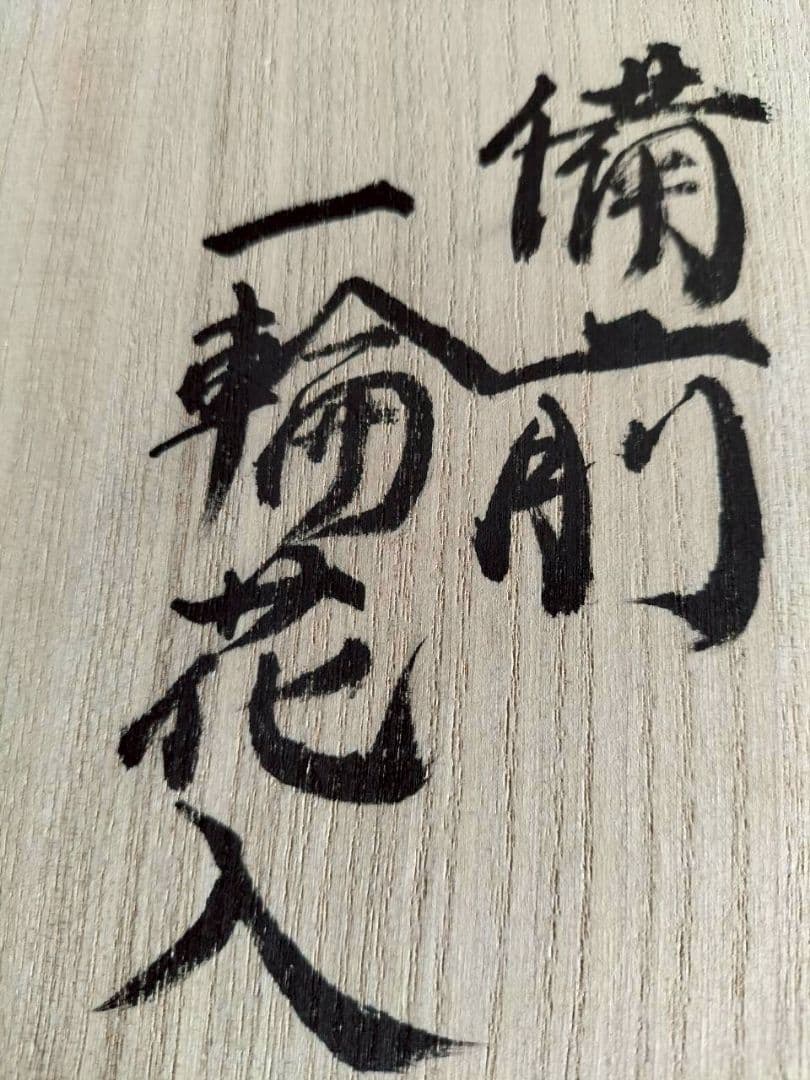 備前
一輪花入